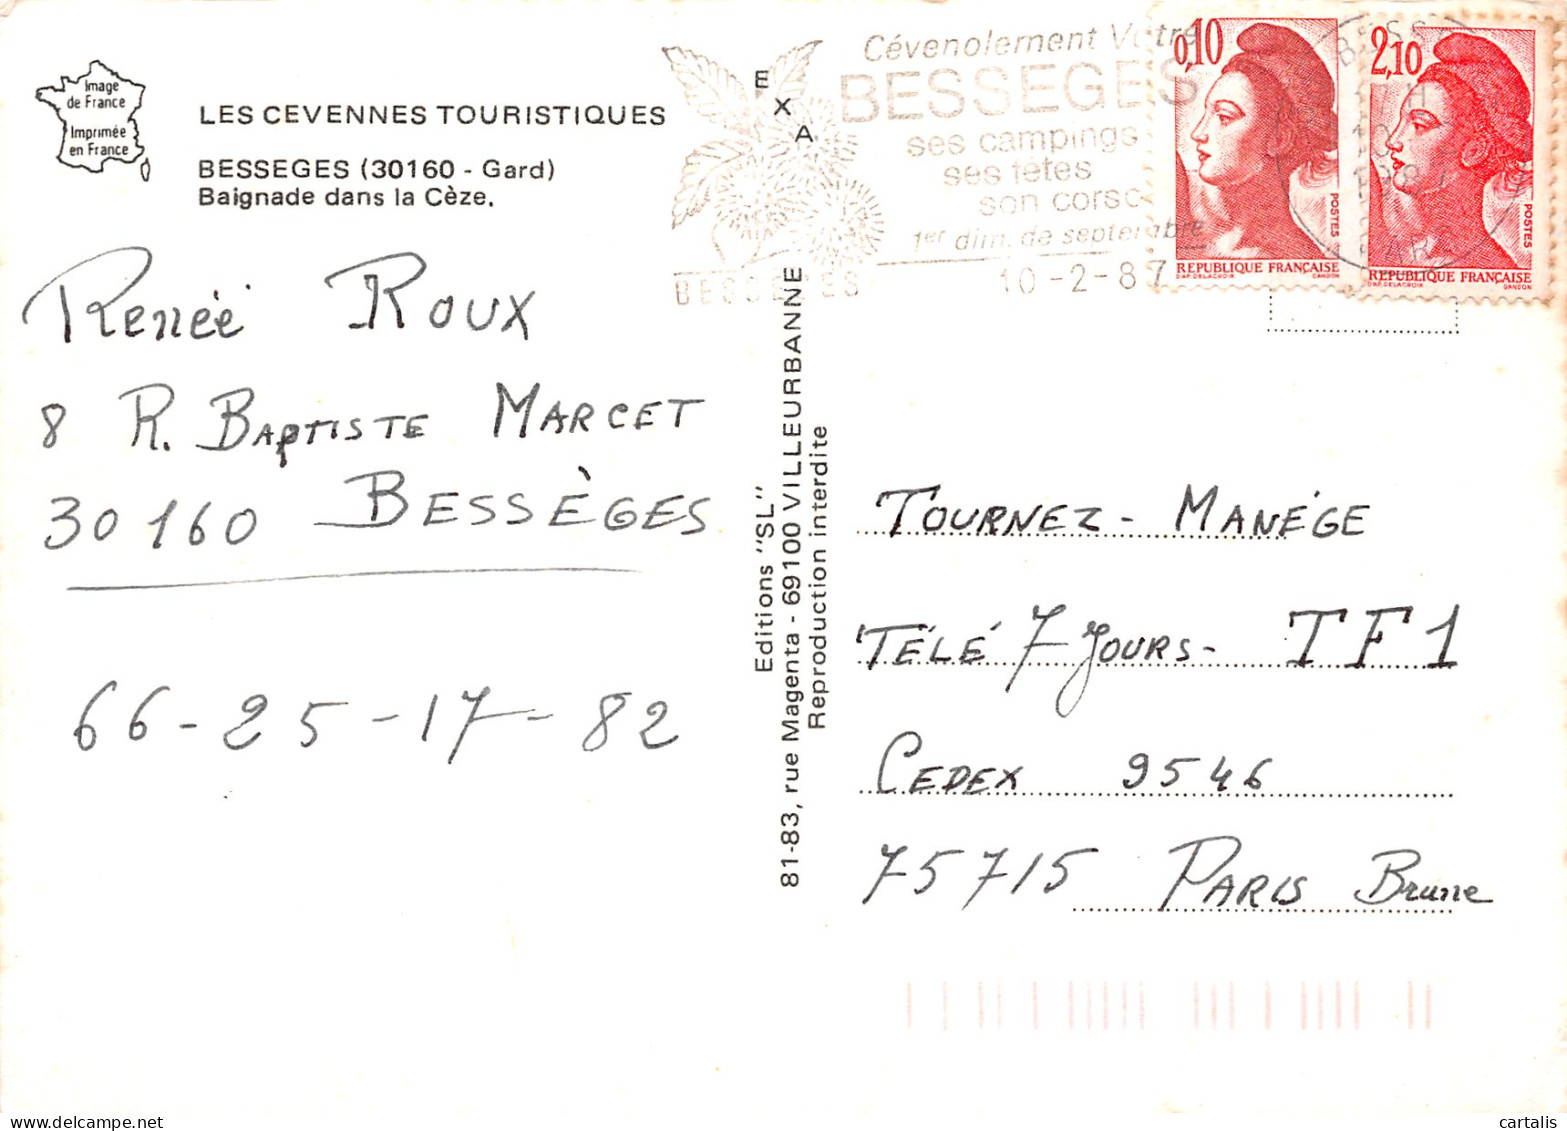 Image
de France
Imprimée
en France
LES CEVENNES TOURISTIQUES
BESSEGES (30160 - Gard)
Baignade dans la Cèze.
Renée Roux
8 R. BAPTISTE MARCET
30160 BESSÈGES
66-25-17-82
EXA
Editions "SL"
81-83, rue Magenta - 69100 VILLEURBANNE
Reproduction interdite
Cévenolement Vôtre
BESSEGES
ses campings
ses fêtes
son corso
1er dim. de septembre
BESSEGES
10-2-87
0,10
POSTES
REPUBLIQUE FRANÇAISE
D'AP. DELACROIX GANDON
2,10
POSTES
REPUBLIQUE FRANÇAISE
D'AP. DELACROIX GANDON
TOURNEZ - MANÉGE
TÉLÉ 7 JOURS - TF1
CEDEX 9546
75715 PARIS Brune
cartalis